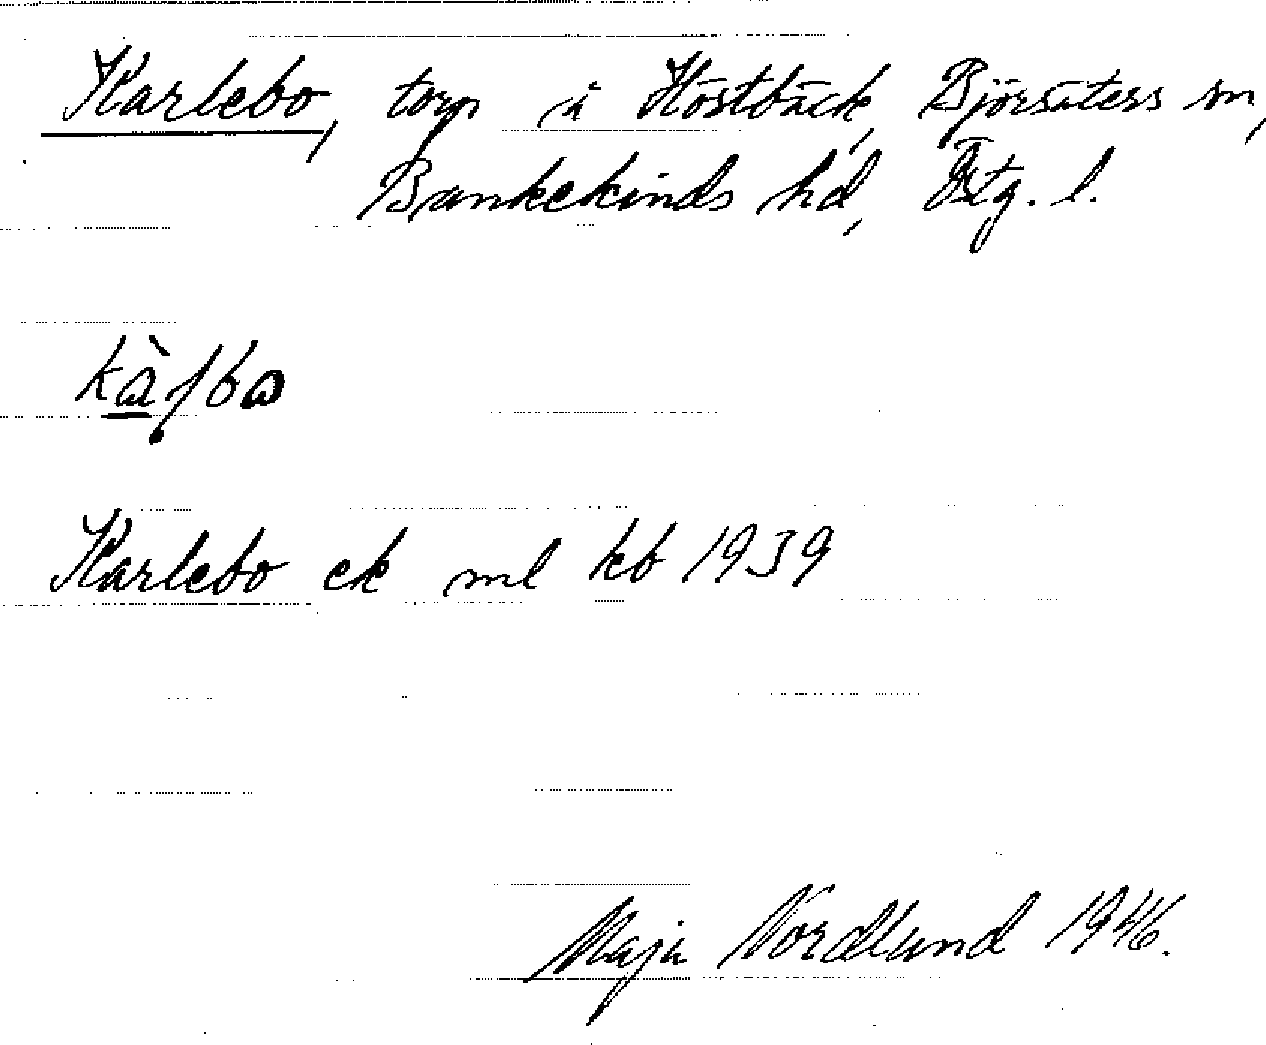 Karlebo, torp å Höstbäck, Björsäters sn,
Bankekinds hd, Östg. l.
Karlebo ek ml kb 1939
Maja Nordlund 1946.